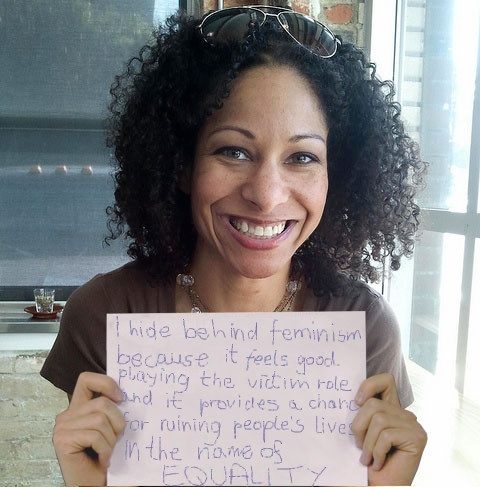 I hide behind feminism
because it feels good
playing the victim role
and it provides a chance
for ruining people's lives
In the name of
EQUALITY